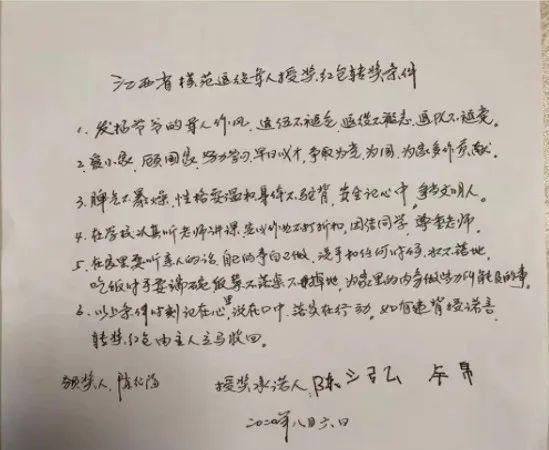 江西省模范退役军人授奖红包转奖条件
1. 发扬爷爷的军人作风,退伍不褪色,退役不褪志,退队不褪党。
2. 爱小家,顾国家,努力学习,早日成才,争取为党、为国、为家多作贡献。
3. 脾气不暴燥,性格要温和,身体不驼背,安全记心中,争当文明人。
4. 在学校认真听老师讲课,完成作业不打折扣,团结同学,尊重老师。
5. 在家里要听亲人的话,自己的事自己做,洗手和任何时候,水不落地,
吃饭时手要端碗,饭菜不落桌不掉地,为家里的内务做些力所能及的事。
6. 以上条件时刻记在心里,说在口中,落实在行动。如有违背授诺言,
转奖红包由主人立马收回。
颁奖人:陈
授奖承诺人:陈
二〇二〇年八月六日